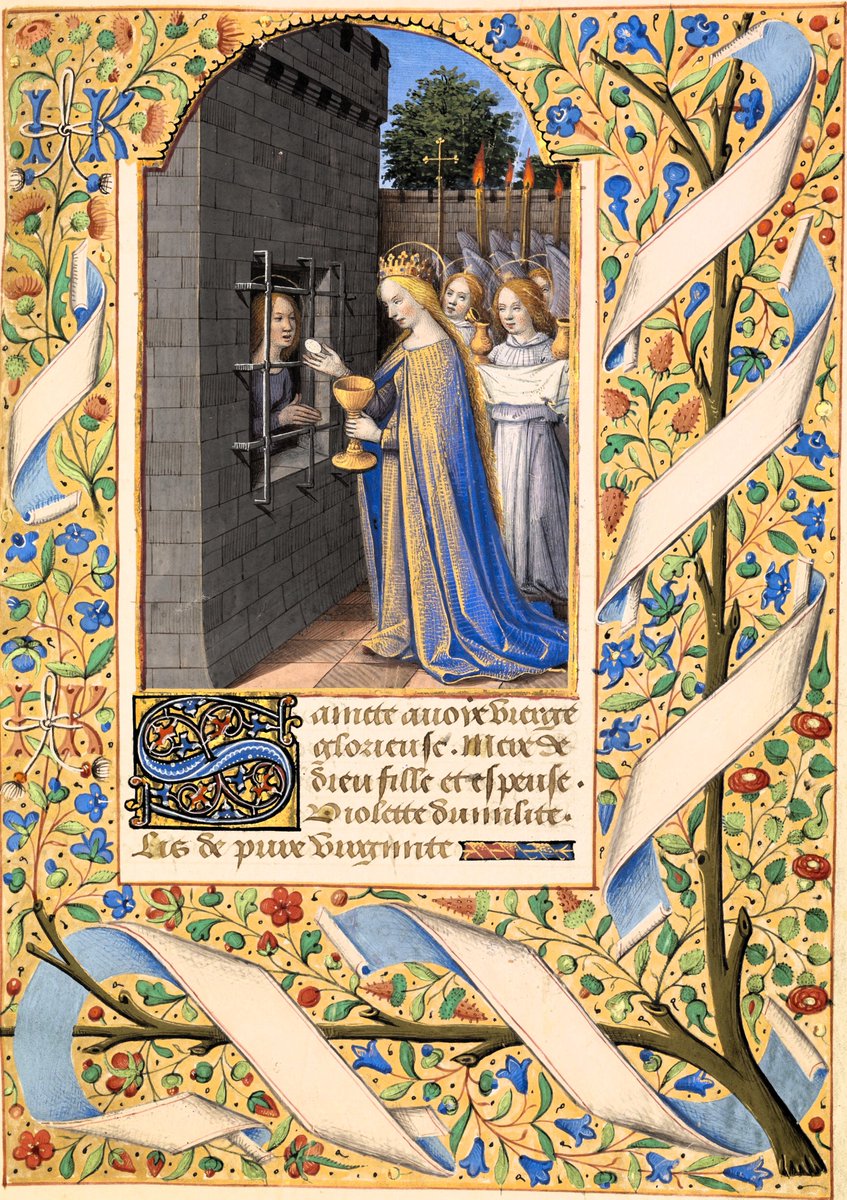 IK
IK
Saincte avoix vierge
glorieuse. Mere de
dieu fille et espeuse.
Violette dumilite.
Lis de pure virginite